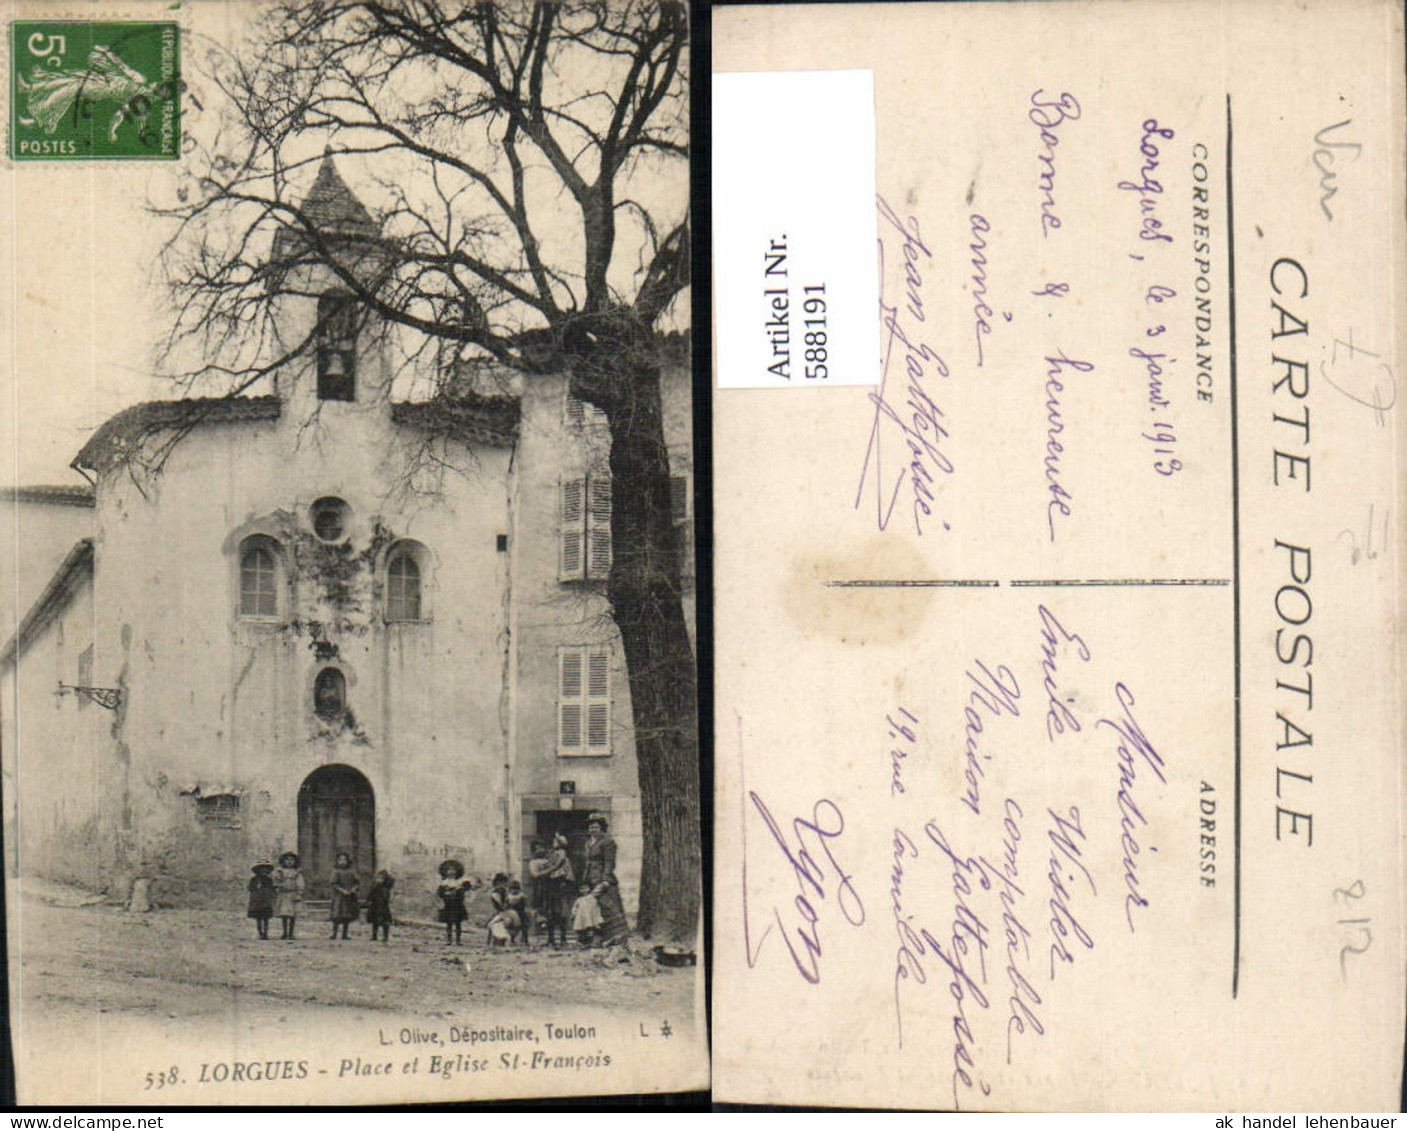 5c
RÉPUBLIQUE FRANÇAISE
POSTES
L. Olive, Dépositaire, Toulon L
538. LORGUES - Place et Eglise St-François
Artikel Nr.
588191
CARTE POSTALE
CORRESPONDANCE
ADRESSE
Var
Lorgues, le 3 janv. 1913
Bonne & heureuse
année
Jean Gattefossé
Monsieur
Emile Wisler
comptable
Maison Gattefossé
19, rue Camille
Lyon
ak handel lehenbauer